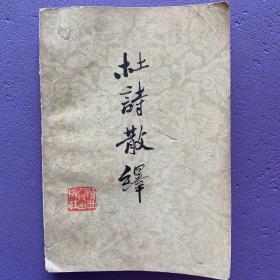 杜詩散繹